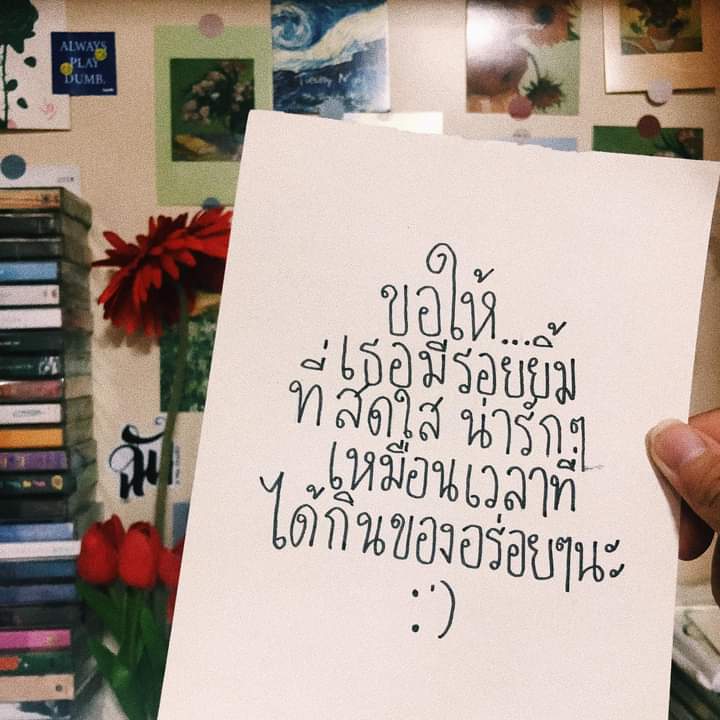 ALWAYS
PLAY
DUMB.
ขอให้...
เธอมีรอยยิ้ม
ที่สดใส น่ารักๆ
เหมือนเวลาที่
ได้กินของอร่อยๆนะ
:)